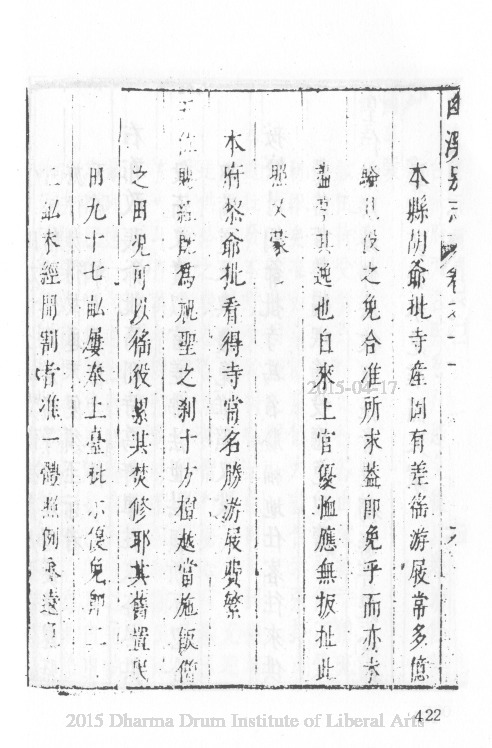 幽溪別志 卷之十一
本縣胡爺批寺產固有差徭游屐常多億
騷凡役之免合准所求益即免乎而亦未
盡享其逸也自來上官優恤應無扳扯此
照又蒙
本府黎爺批看得寺當名勝游屐費繁
既為祝聖之剎十方檀越當施飯僧
之田況可以徭役累其焚修耶其舊置民
田九十七畝屢奉上臺批示復免即
畝未經開割者准一體照例永遠
2015-04-17
422
2015 Dharma Drum Institute of Liberal Arts